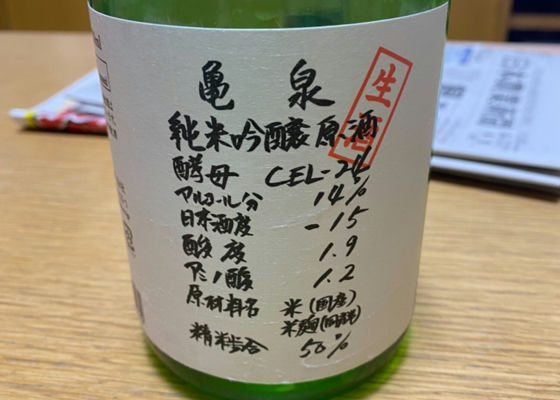 亀泉
純米吟醸原酒
生酒
酵母 CEL-24
アルコール分 14%
日本酒度 -15
酸度 1.9
アミノ酸 1.2
原材料名 米(国産)
米麹(国産米)
精米歩合 50%